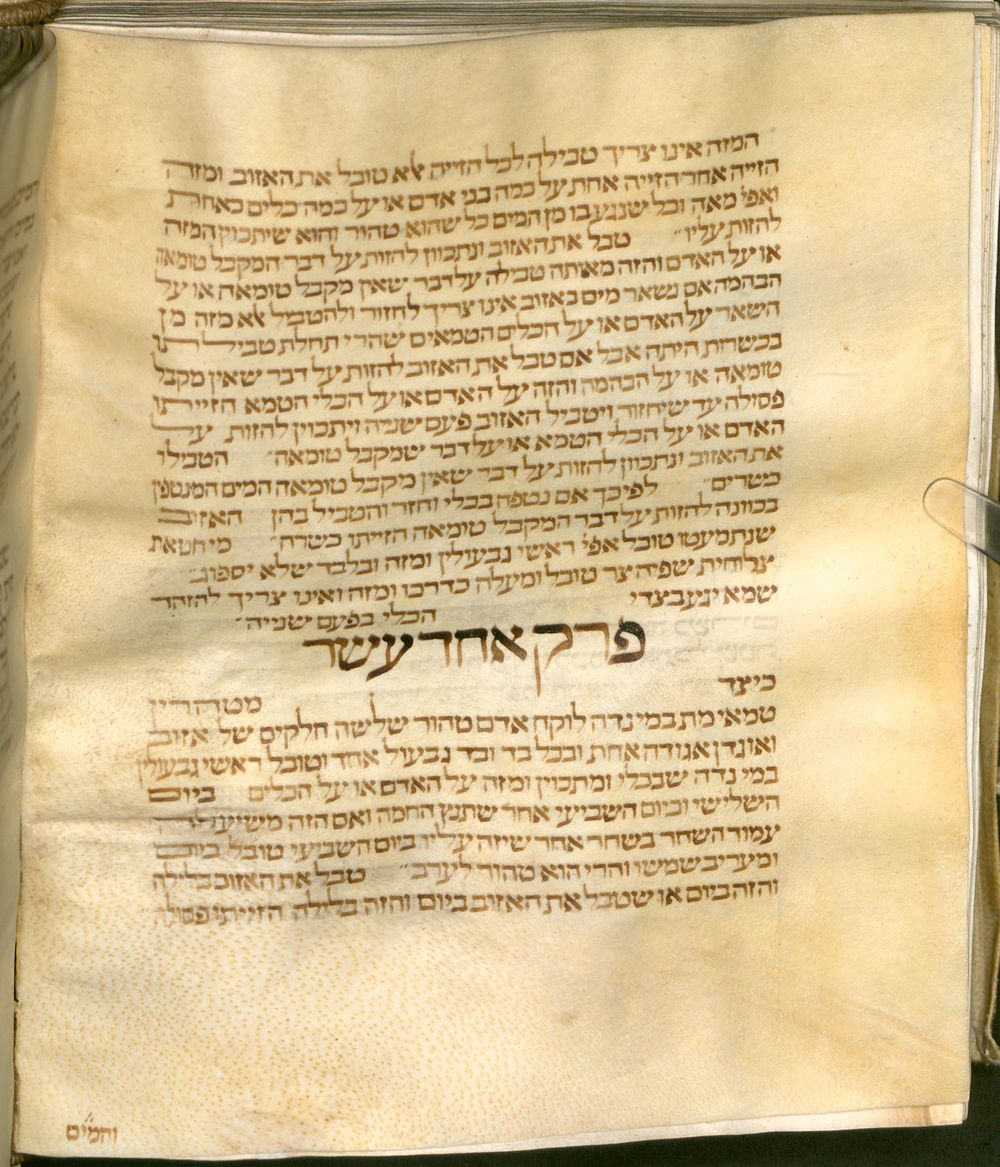 המזה אינו צריך טבילה לכל הזייה אלא טובל את האזוב ומזה
הזייה אחר הזייה אחת על כמה בני אדם או על כמה כלים כאחת
ואפי' מאה וכל שנגע בו מן המים כל שהוא טהור והוא שיתכוין המזה
להזות עליו״ טבל את האזוב ונתכוון להזות על דבר המקבל טומאה
או על האדם והזה מאותה טבילה על דבר שאין מקבל טומאה או על
הבהמה אם נשאר מים באזוב אינו צריך לחזור ולהטביל אלא מזה מן
השאר על האדם או על הכלים הטמאים שהרי תחלת טבילתו
בכשרות היתה אבל אם טבל את האזוב להזות על דבר שאין מקבל
טומאה או על הבהמה והזה על האדם או על הכלי הטמא הזייתו
פסולה עד שיחזור ויטביל האזוב פעם שנייה ויתכוין להזות על
האדם או על הכלי הטמא או על דבר שמקבל טומאה״ הטביל
את האזוב ונתכוון להזות על דבר שאין מקבל טומאה המים המנטפין
כשרים״ לפיכך אם נטפה בכלי וחזר והטביל בהן האזוב
בכוונה להזות על דבר המקבל טומאה הזייתו כשרה״ מי חטאת
שנתמעטו טובל אפי' ראשי גבעולין ומזה ובלבד שלא יספוג״
צלוחית שפיה צר טובל ומעלה כדרכו ומזה ואינו צריך להזהר
שמא יגע בצדי הכלי בפעם שנייה״
פרק אחד עשר
כיצד מטהרין
טמאי מת במי נדה לוקח אדם טהור שלשה חלקים של אזוב
ואוגדן אגודה אחת ובכל בד ובד גבעול אחד וטובל ראשי גבעולין
במי נדה שבכלי ומתכוין ומזה על האדם או על הכלים ביום
השלישי וביום השביעי אחר שתנץ החמה ואם הזה משיעלה
עמוד השחר כשר אחר שיזה עליו ביום השביעי טובל ביום
ומעריב שמשו והרי הוא טהור לערב״ טבל את האזוב בלילה
והזה ביום או שטבל את האזוב ביום והזה בלילה הזייתו פסולה
והמים